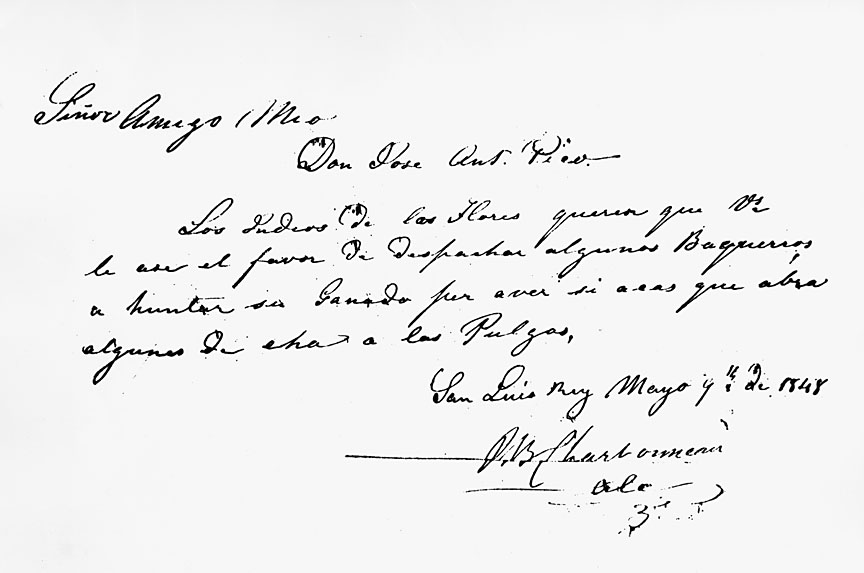 Señor Amigo Mio
Don Jose Ant. Pico.
Los Indios de las Flores queren que Vd
le ase el favor de despachar algunos Baquerros
a huntar su Ganado per aver si acas que abra
algunes de eha a las Pulgas,
San Luis Rey Mayo 9 de 1848
J.B. Charbonneau
Alc